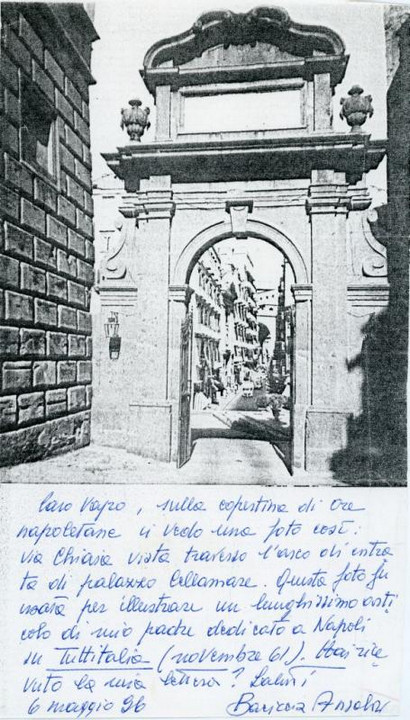 Caro Vapro, sulla copertina di ore
napoletane vi vedo una foto così:
via Chiaia vista traverso l'arco di entra
ta di palazzo Cellamare. Questa foto fu
usata per illustrare un lunghissimo arti
colo di mio padre dedicato a Napoli
su Tuttitalia (novembre 61). Hai rice
vuto la mia lettera? Saluti
6 maggio 96